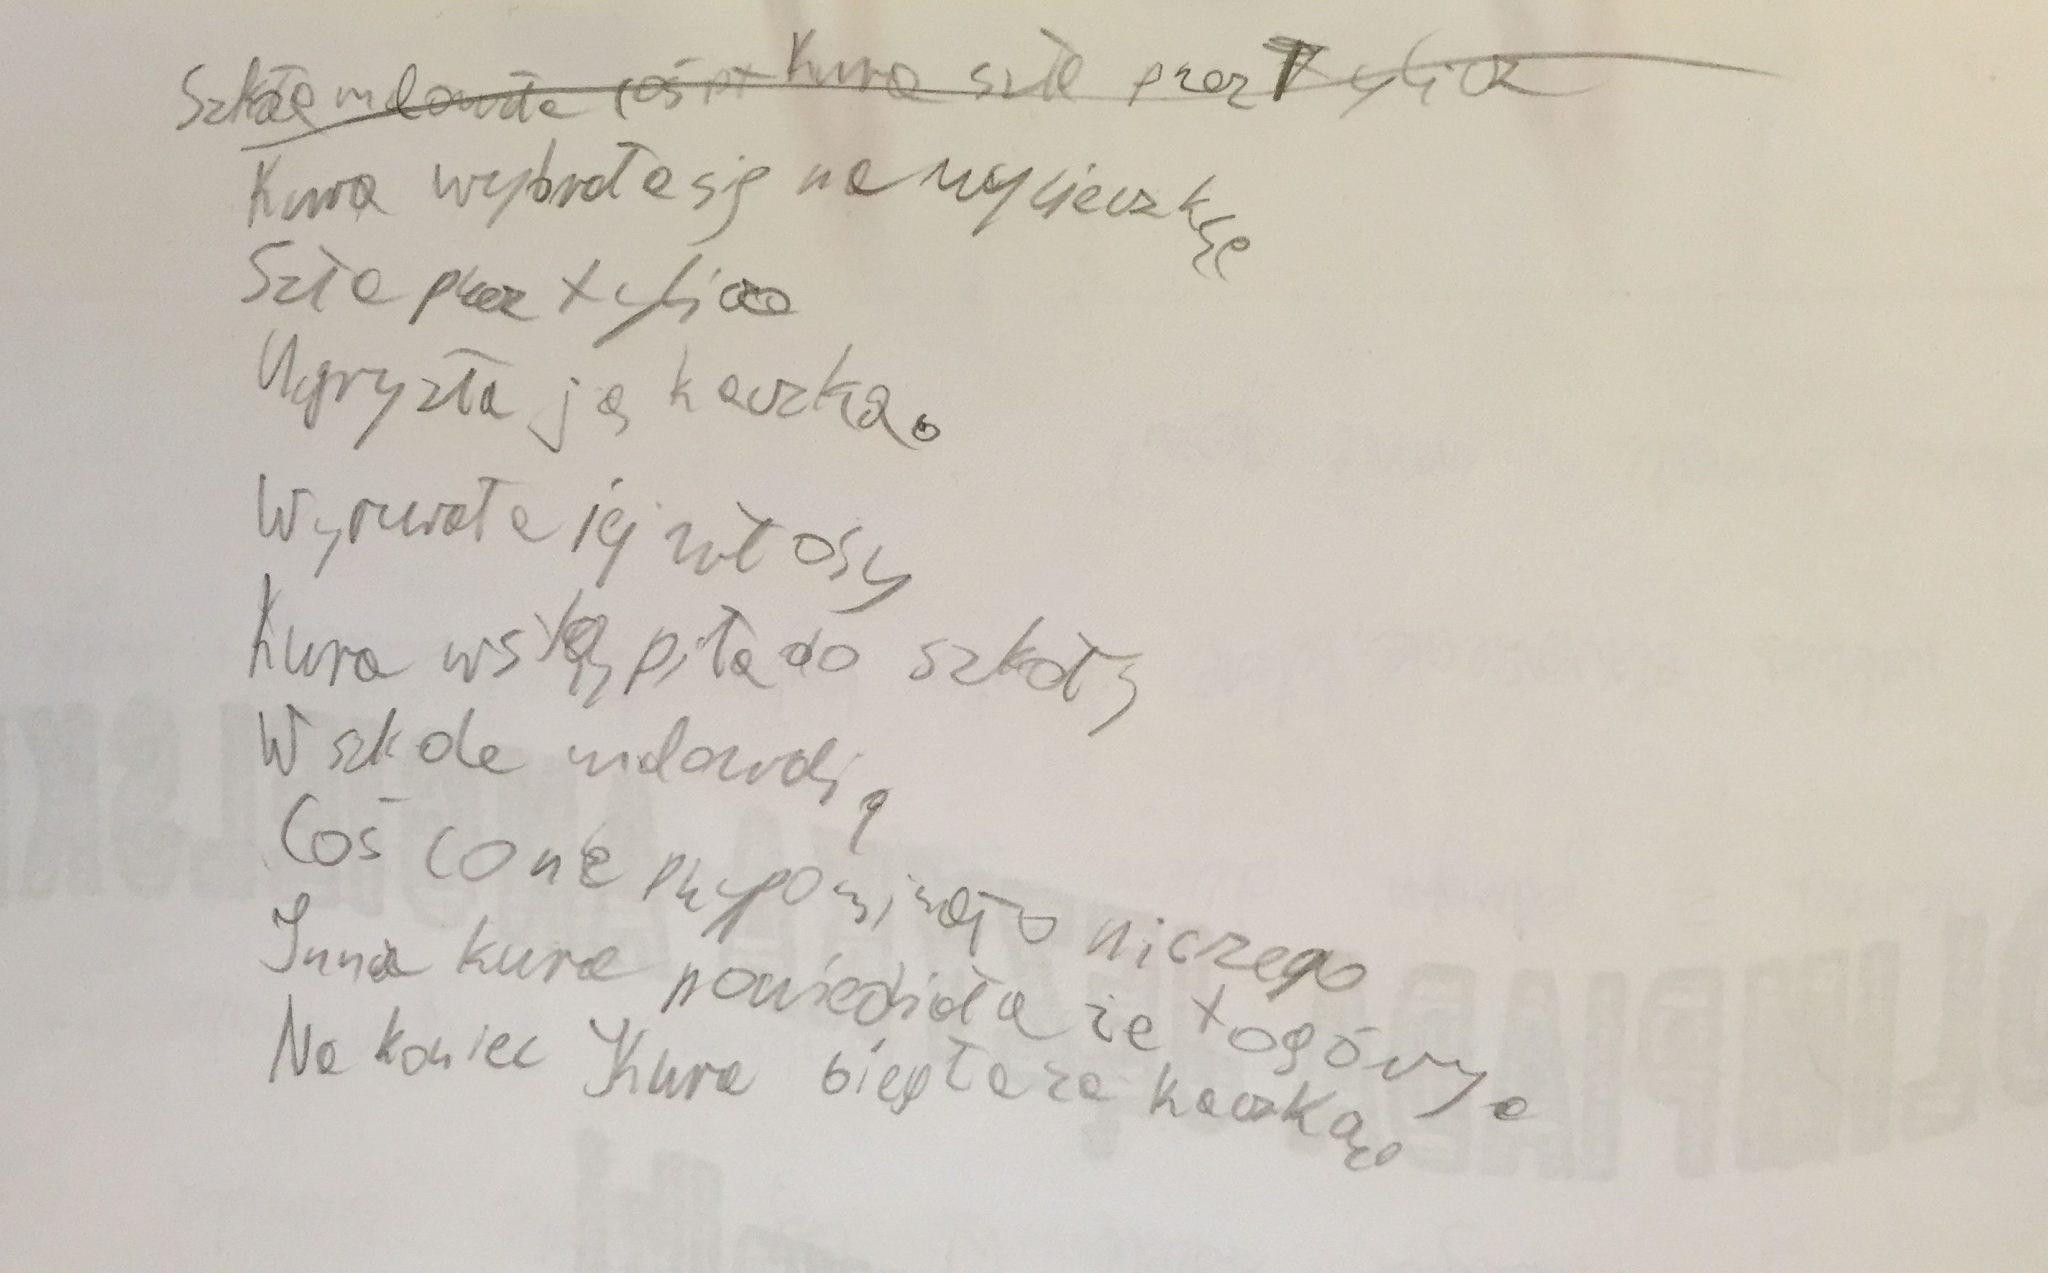 Kura wybrała się na wycieczkę
Szła przez tylicz
Ugryzła ją kaczka.
Wyrwała jej włosy
Kura wstąpiła do szkoły
W szkole malowali
Coś co nie przypominało niczego
Inna kura powiedziała że to góry.
Na koniec Kura biegła za kaczką.